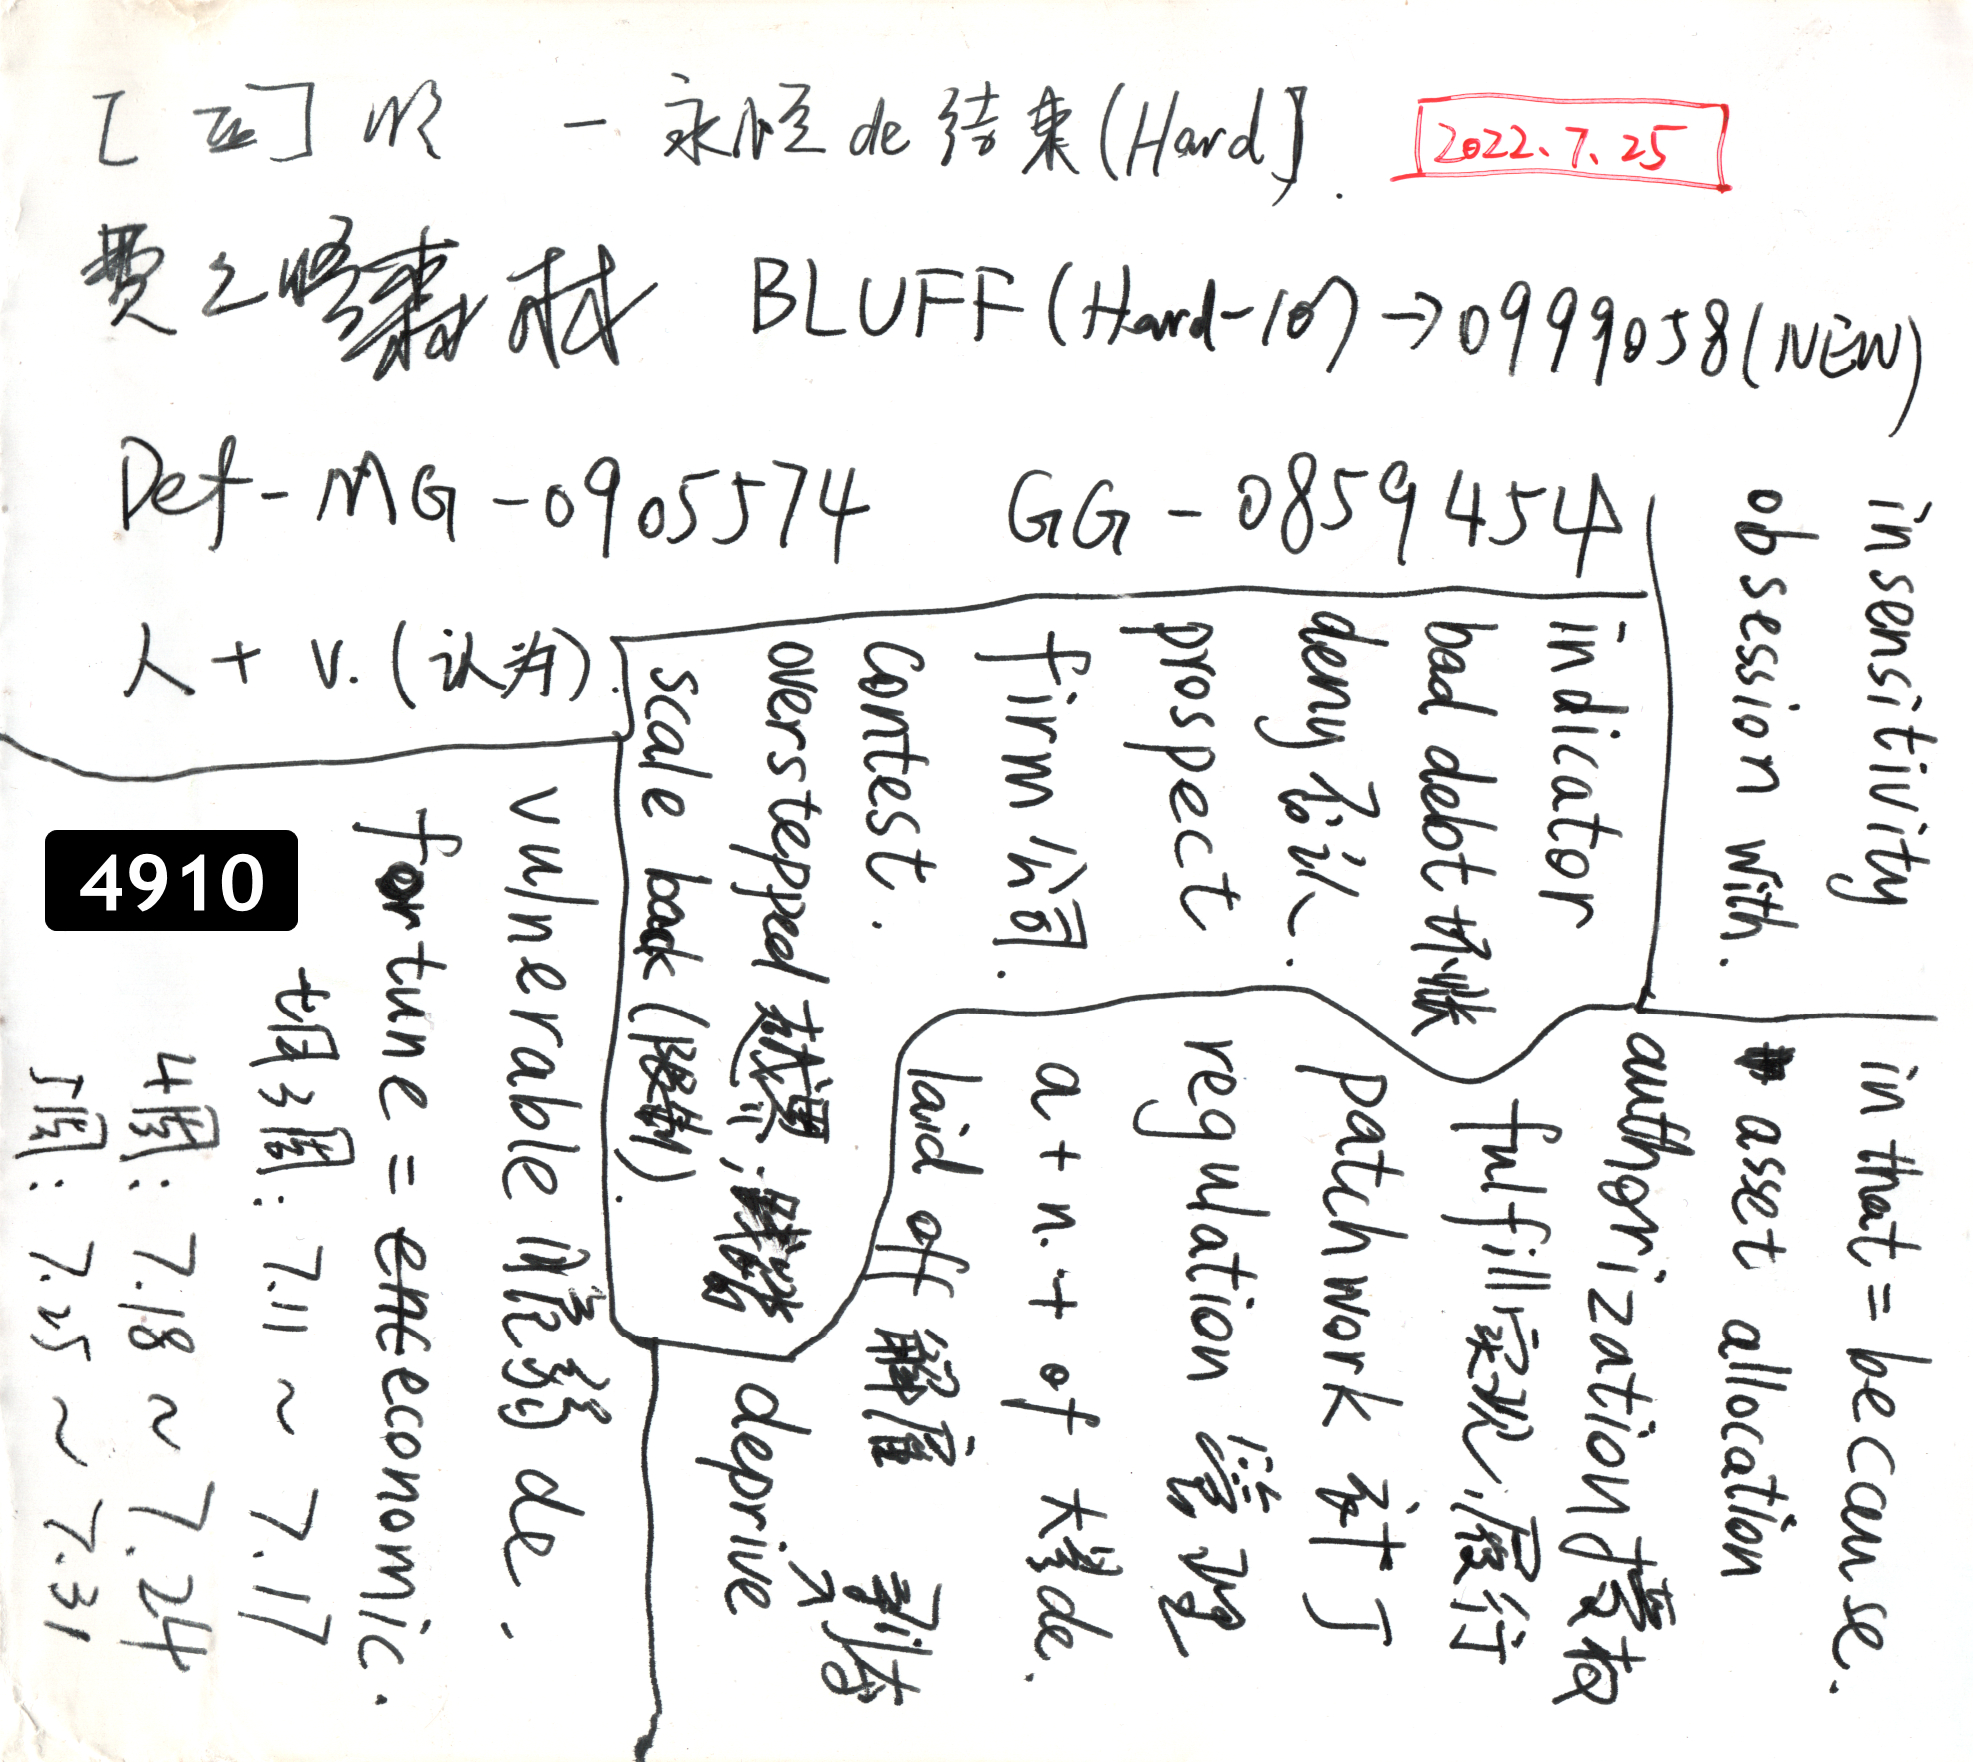 永恒de结束(Hard)
2022.7.25
BLUFF(Hard-10) → 0999058(NEW)
Def-MG-0905574 GG-0859454
人+v.(认为).
insensitivity
obsession with.
indicator
bad debt 坏账
deny 否认.
prospect
firm 公司.
contest.
overstepped 越界;
scale back (缩制).
in that = because.
asset allocation
authorization 授权
fulfill 实现/履行
patchwork 补丁
regulation 监管
a+n.+of 大量de.
laid off 解雇
deprive 剥夺
vulnerable 脆弱de.
fortune = economic.
七月3周: 7.11~7.17
4周: 7.18~7.24
5周: 7.25~7.31
4910